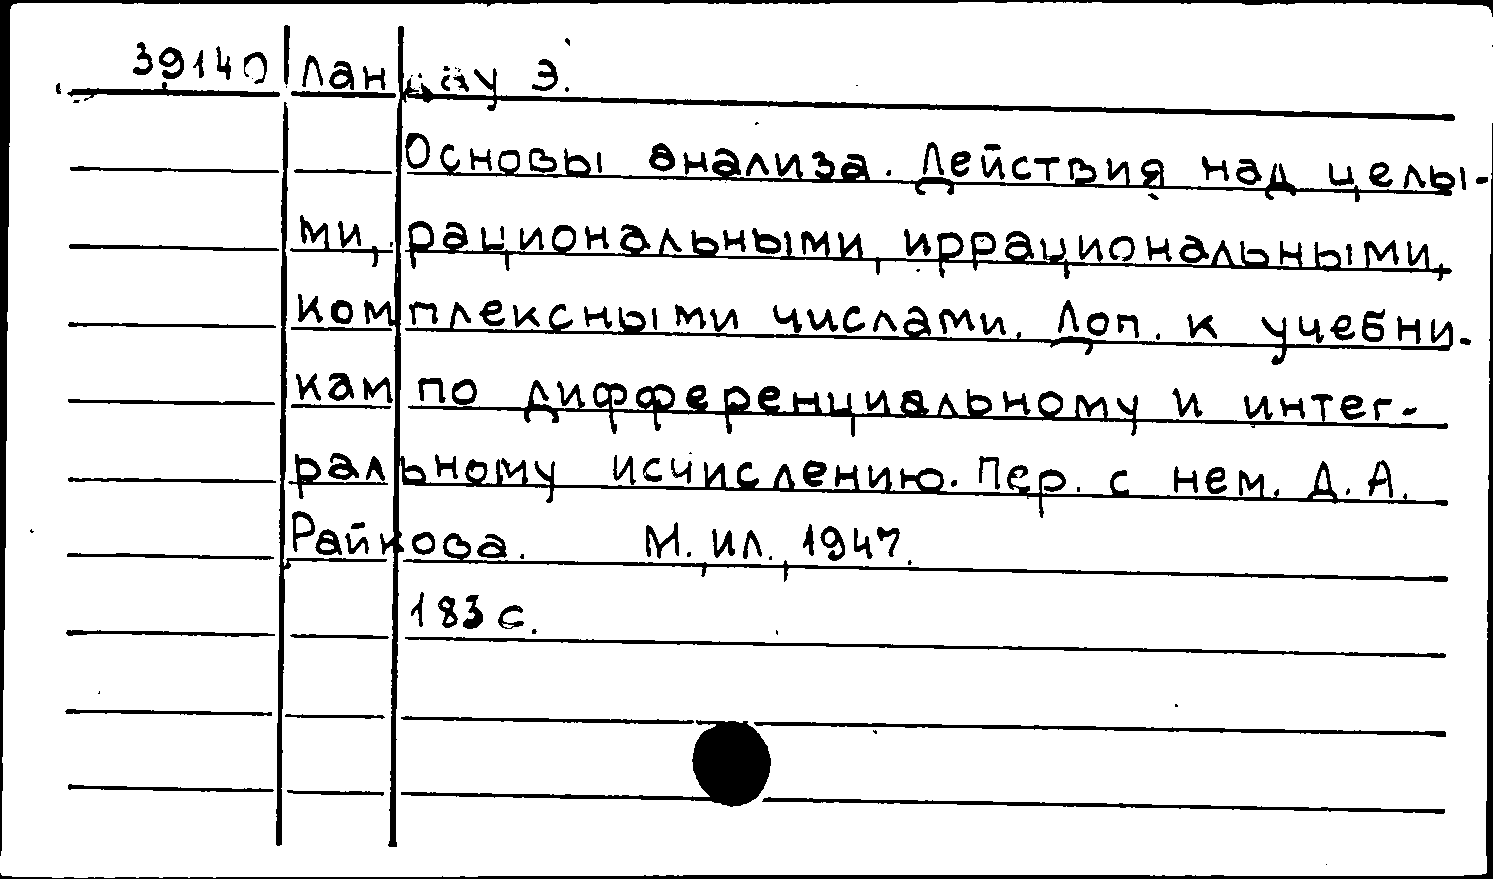 39140 Ландау Э.
Основы анализа. Действия над целы-
ми, рациональными, иррациональными,
комплексными числами. Доп. к учебни-
кам по дифференциальному и интег-
ральному исчислению. Пер. с нем. Д. А.
Райкова. М., ИЛ., 1947.
183 с.